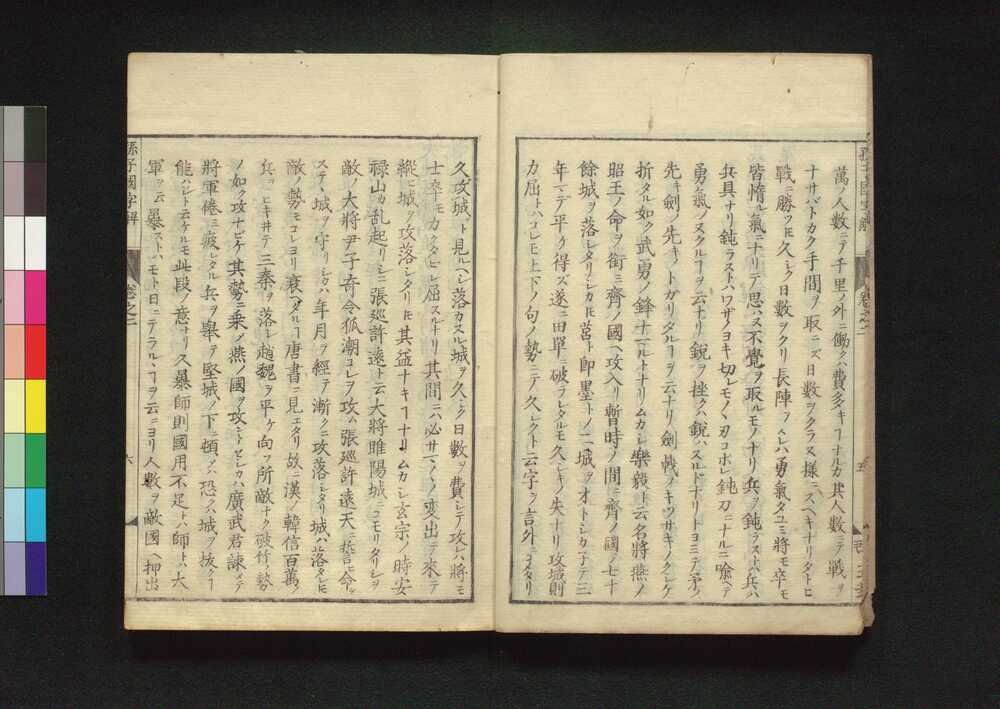 萬ノ人數ニテ千里ノ外ニ働ク費多キヿナルカ其人數ニテ戰ヲ
ナサバトカク手間ヲ取ニズ日數ヲクラス樣ニスヘキナリタトヒ
戰ニ勝ツ𪜈久シク日數ヲクリ長陣ヲスレハ勇氣タユミ將モ卒モ
皆惰ル氣ニナリテ思ハス不覺ヲ取ルモノナリ兵ヲ鈍ラストハ兵ハ
兵具ナリ鈍ラストハワザノヨキ切レモノヽ刃コホレ鈍刀ニナルニ喩ヘテ
勇氣ノヌクルヿヲ云ナリ銳ヲ挫クハ銳ハスルドナリトヨミテ矛ノ
先キ劍ノ先キノトガリタルヿヲ云ナリ劍戟ノキツサキノクシケ
折タル如ク武勇ノ鋒ナマルトナリムカシ樂毅ト云名將燕ノ
昭王ノ命ヲ銜ミ齊ノ國ヘ攻入リ暫時ノ間ニ齊ノ國ノ七十
餘城ヲ落シタリシカ𪜈莒ト卽墨トノ二城ヲオトシカ子テ三
年マデ平ケ得ズ遂ニ田單ニ破ラレタルモ久シキノ失ナリ攻城則
力屈トハコレモ上ト下ノ句ノ勢ニテ久シクト云字ヲ言外ニヲタリ
久攻城ト見ルヘシ落カヌル城ヲ久シク日數ヲ費シテ攻レハ將モ
士卒モカクタヒレ屈スルナリ其間ニハ必サマ〱ノ變出テ來テ
縱ヒ城ヲ攻落シタリ𪜈其益ナキヿナリムカシ玄宗ノ時安
祿山カ乱起リシニ張巡許遠ト云大將睢陽城ニコモリタリシヲ
敵ノ大將尹子奇令狐潮コレヲ攻ム張巡許遠天ニ誓ヒ命ヲ
ステヽ城ヲ守リシカハ年月ヲ經テ漸クニ攻落シタリ城ハ落タレ𪜈
敵ノ勢モコレヨリ衰ヘタルヿ唐書ニ見エタリ故ニ漢ノ韓信百萬ノ
兵ヲヒキ井テ三秦ヲ落シ趙魏ヲ平ケ向フ所敵ナク破竹ノ勢
ノ如ク攻ナビケ其勢ニ乘ノ燕ノ國ヲ攻ントセシカハ廣武君諫メテ
將軍倦ミ疲レタル兵ヲ擧テ堅城ノ下ニ頓メハ恐クハ城ヲ拔クヿ
能ハシト云ケルモ此段ノ意ナリ久暴師則國用不足トハ師トハ大
軍ヲ云暴ストハモト日ニテラルヽヿヲ云ニヨリ人數ヲ敵國ヘ押出
孫子國字解
卷之二
六